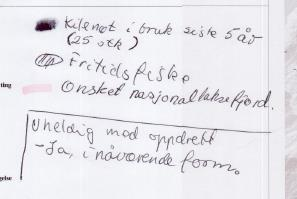 Kilenot i bruk siste 5 år
(25 stk)
Fritidsfiske
ting
Ønsket nasjonal laksefjord.
Uheldig med oppdrett
- Ja, i nåværende form.
gelse